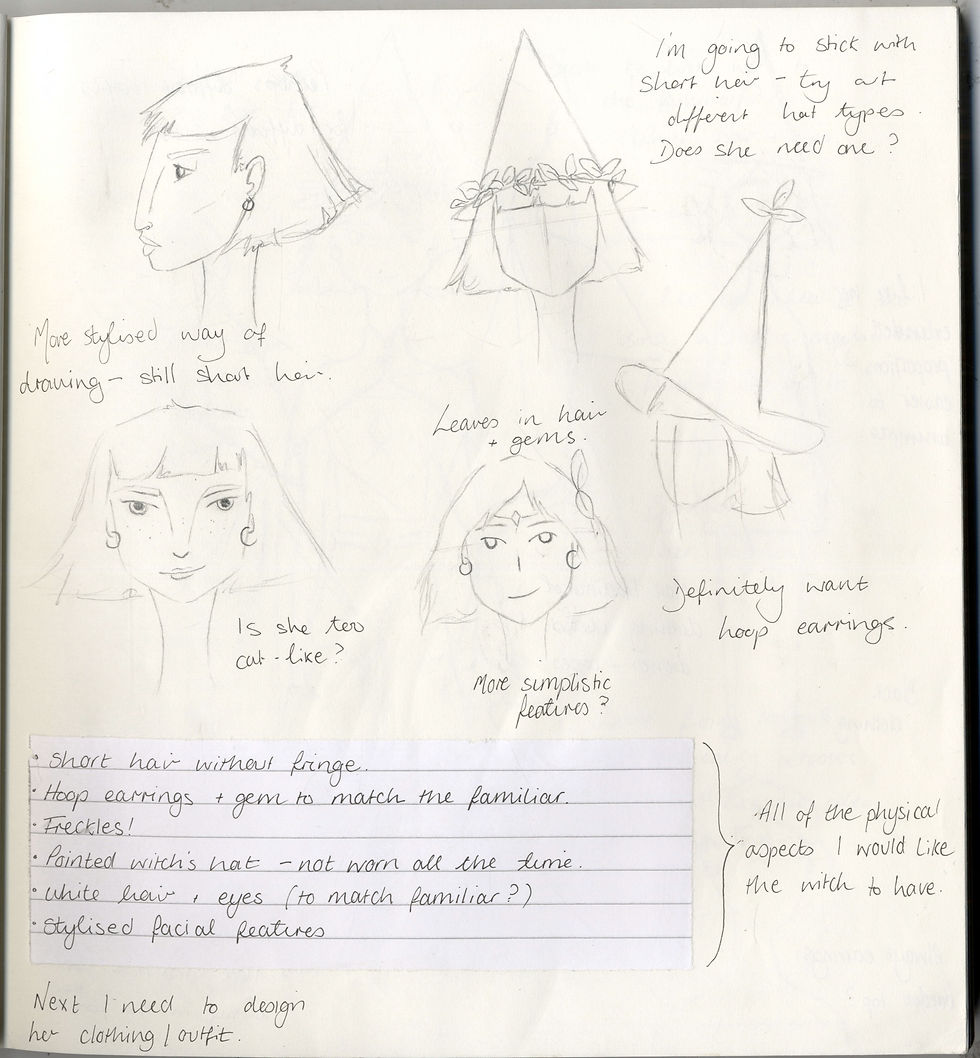 I'm going to stick with
short hair - try out
different hat types.
Does she need one?
More stylised way of
drawing - still short hair.
Leaves in hair
+ gems.
Is she too
cat-like?
More simplistic
features?
Definitely want
hoop earrings.
• Short hair without fringe.
• Hoop earrings + gem to match the familiar.
• Freckles!
• Pointed witch's hat - not worn all the time.
• White hair + eyes (to match familiar?)
• Stylised facial features
All of the physical
aspects I would like
the witch to have.
Next I need to design
her clothing / outfit.